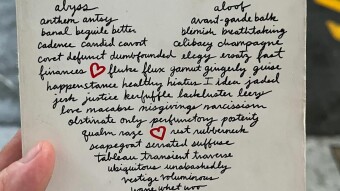 abyss aloof
anthem antsy avant-garde balk
banal beguile bitter blemish breathtaking
cadence candid cavort celibacy champagne
covet defunct dumbfounded elegy ersatz fact
finances fluke flux gamut gingerly guise
happenstance healthy hiatus I idea jaded
jerk justice kerfuffle lackluster leery
love macabre misgivings narcissism
obstinate only perfunctory posterity
qualm raze rest rubberneck
scapegoat serrated suffuse
tableau transient traverse
ubiquitous unabashedly
vestige voluminous
what woo